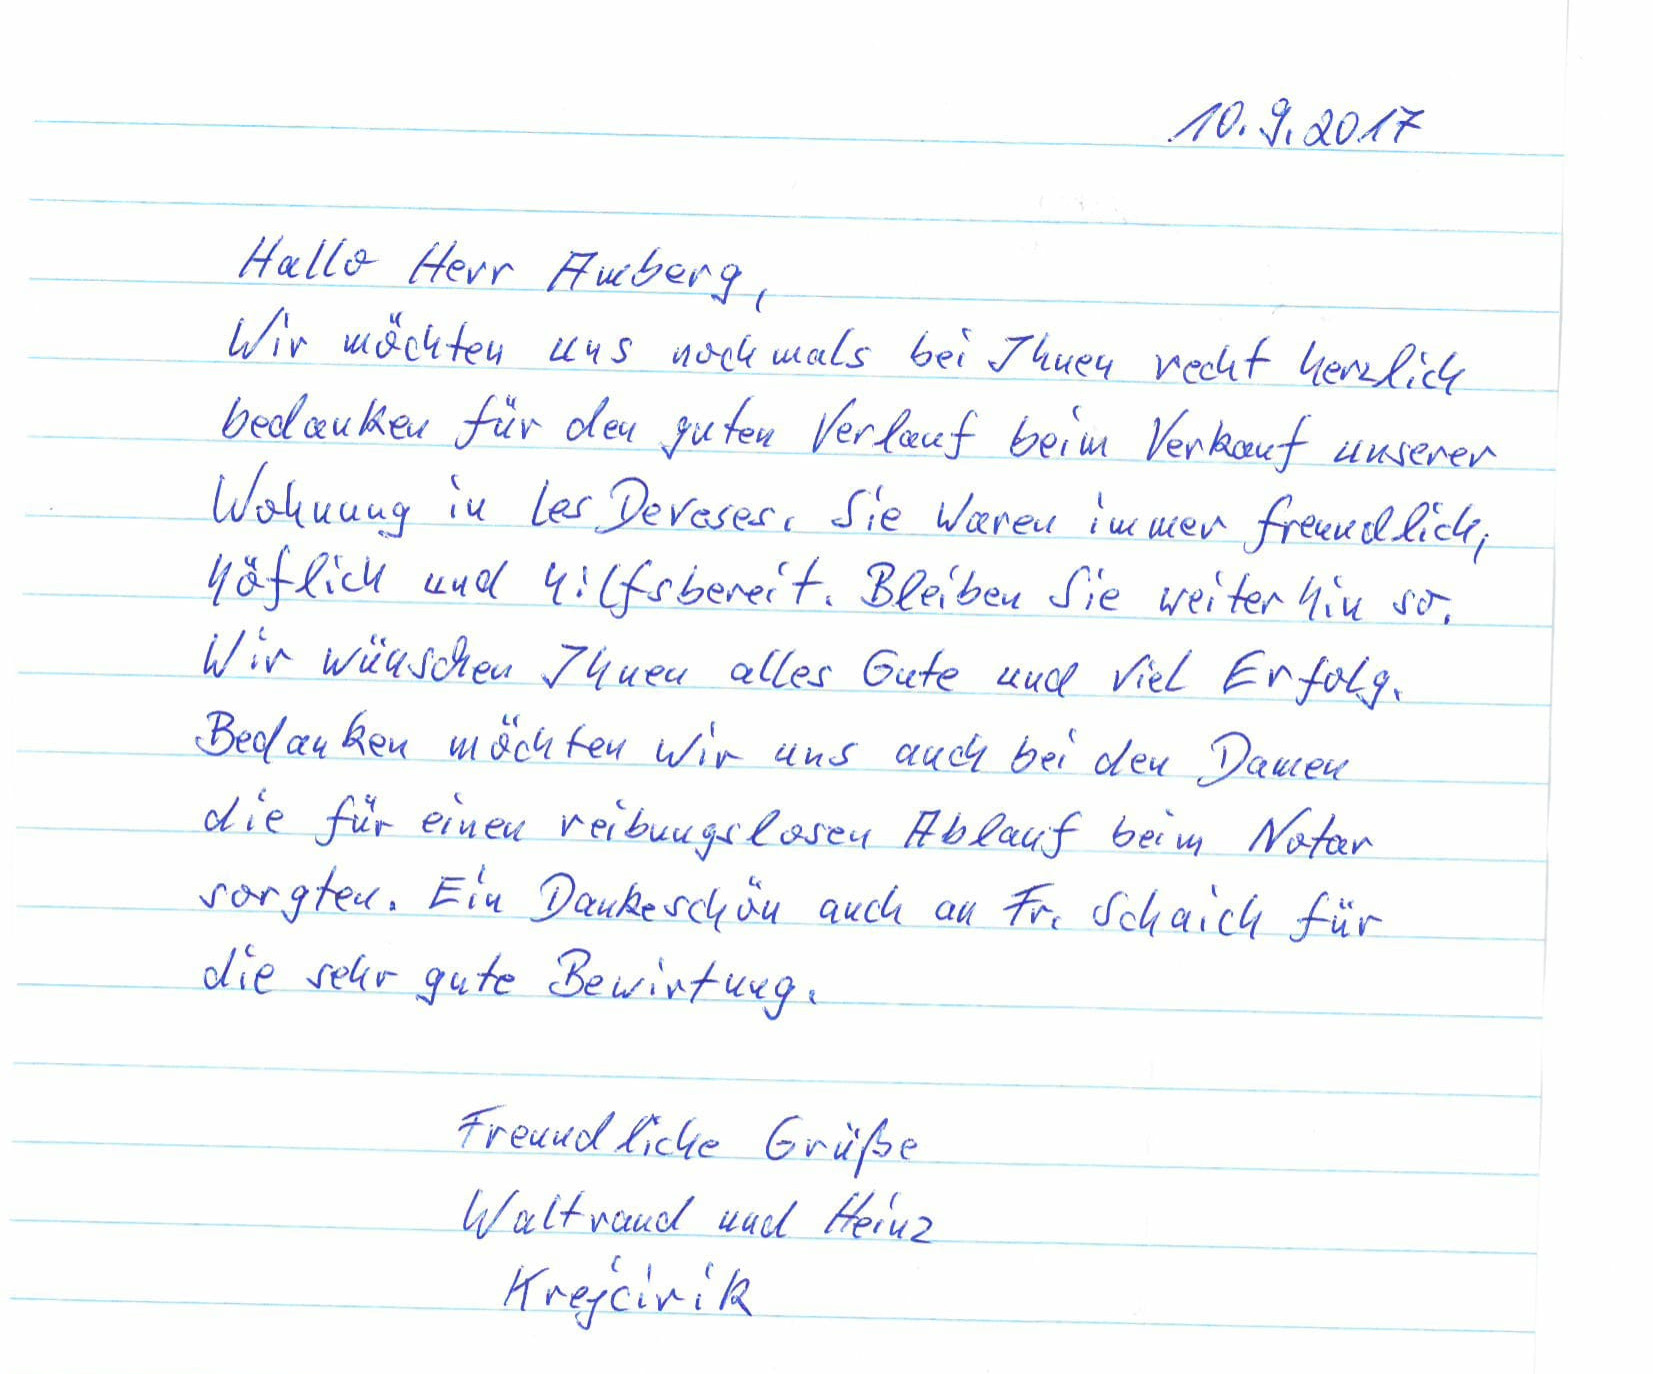 10.9.2017
Hallo Herr Amberg,
Wir möchten uns nochmals bei Ihnen recht herzlich
bedanken für den guten Verlauf beim Verkauf unserer
Wohnung in Les Deveses. Sie waren immer freundlich,
höflich und hilfsbereit. Bleiben Sie weiterhin so.
Wir wünschen Ihnen alles Gute und viel Erfolg.
Bedanken möchten wir uns auch bei den Damen
die für einen reibungslosen Ablauf beim Notar
sorgten. Ein Dankeschön auch an Fr. Schaich für
die sehr gute Bewirtung.
Freundliche Grüße
Waltraud und Heinz
Krejcirik